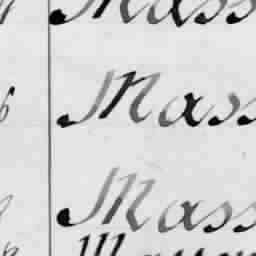 Mass
6 Mass
Mass